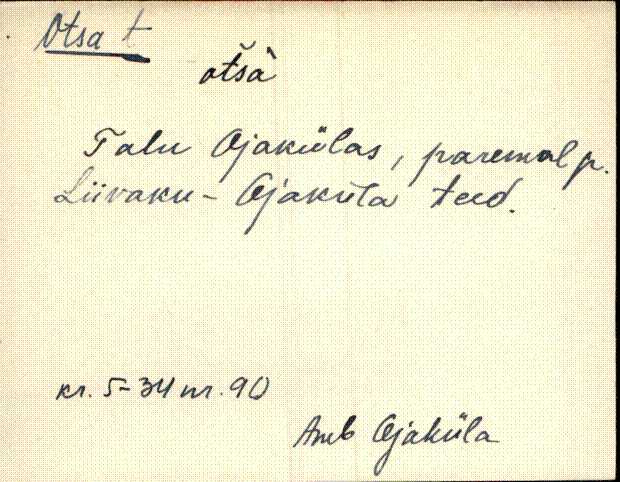 Otsa t
otšà
Talu Ojakülas, paremal p.
Liivaku - Ojaküla teed.
kr. 5-34 nr. 90
Amb Ojaküla